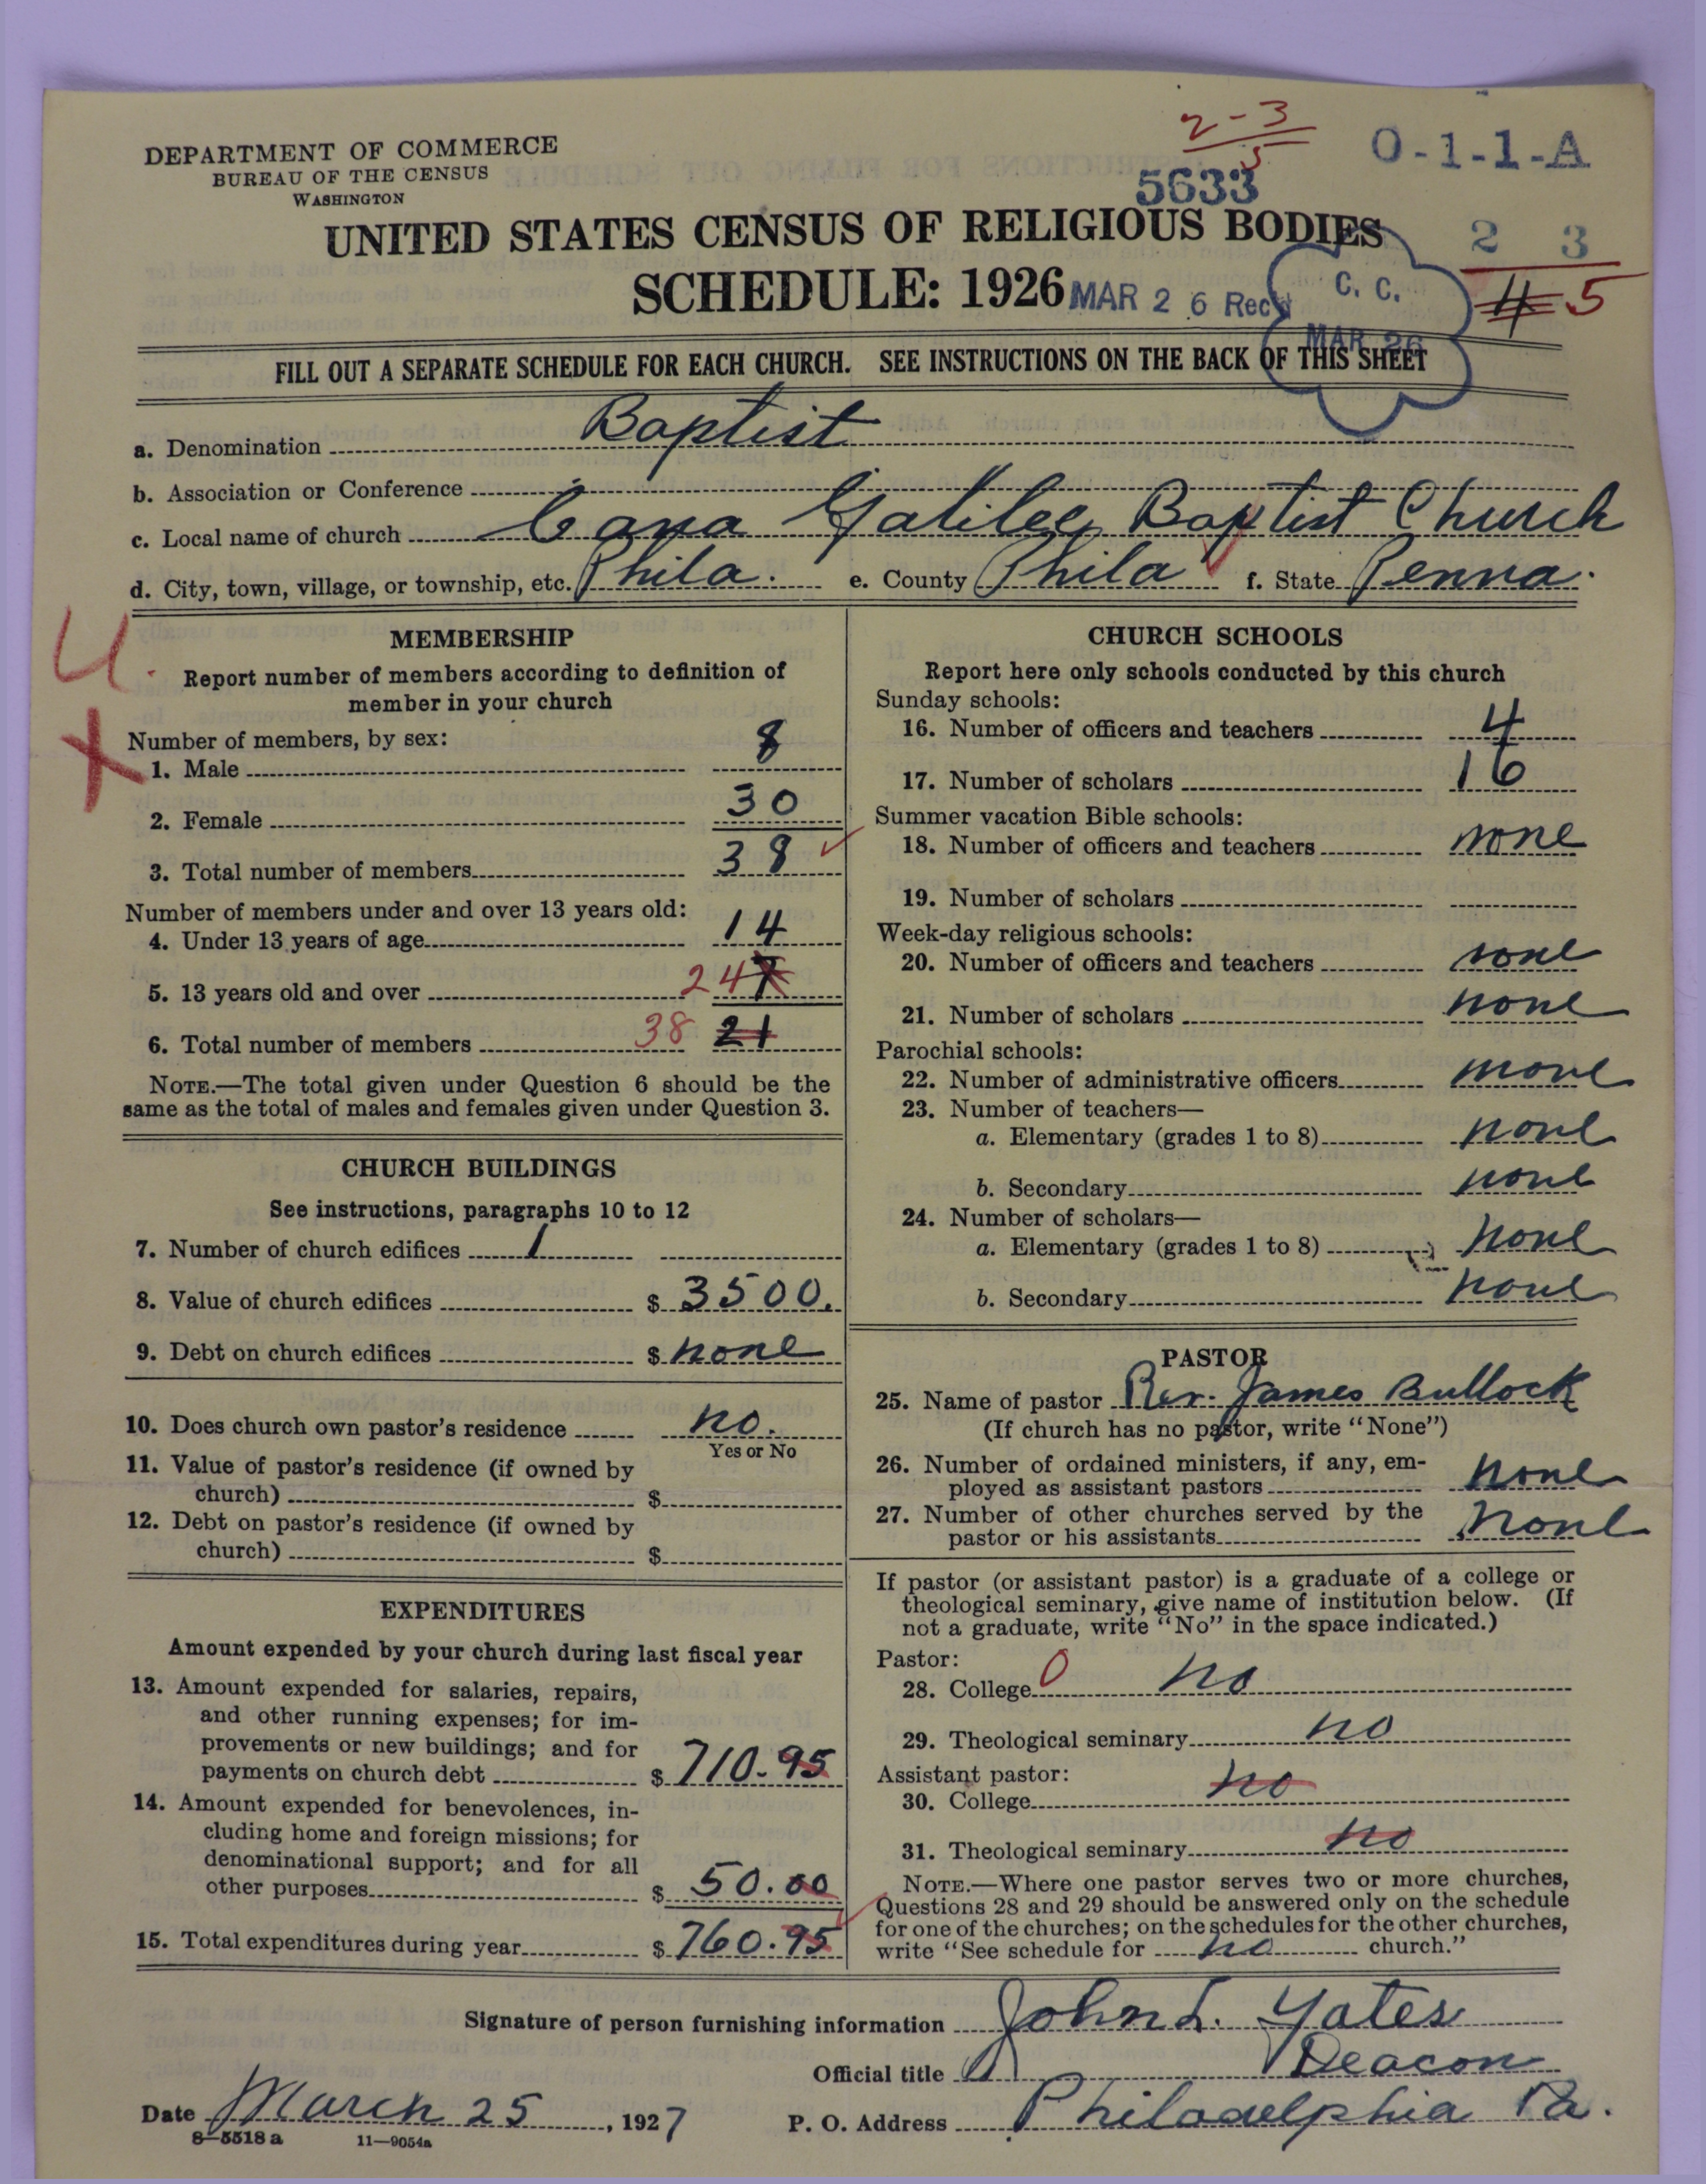 2-3
5
DEPARTMENT OF COMMERCE
BUREAU OF THE CENSUS
WASHINGTON
5633
O-1-1-A
UNITED STATES CENSUS OF RELIGIOUS BODIES
2 3
SCHEDULE: 1926
MAR 26 Rec'd
C. C.
MAR 26
4 5
FILL OUT A SEPARATE SCHEDULE FOR EACH CHURCH. SEE INSTRUCTIONS ON THE BACK OF THIS SHEET
a. Denomination Baptist
b. Association or Conference
c. Local name of church Cana Galilee Baptist Church
d. City, town, village, or township, etc. Phila. e. County Phila f. State Penna.
U.
X
MEMBERSHIP
Report number of members according to definition of
member in your church
Number of members, by sex:
1. Male 8
2. Female 30
3. Total number of members 38
Number of members under and over 13 years old:
4. Under 13 years of age 14
5. 13 years old and over 24 7
6. Total number of members 38 21
NOTE.—The total given under Question 6 should be the
same as the total of males and females given under Question 3.
CHURCH BUILDINGS
See instructions, paragraphs 10 to 12
7. Number of church edifices 1
8. Value of church edifices $ 3500.
9. Debt on church edifices $ none
10. Does church own pastor's residence no.
Yes or No
11. Value of pastor's residence (if owned by
church) $
12. Debt on pastor's residence (if owned by
church) $
EXPENDITURES
Amount expended by your church during last fiscal year
13. Amount expended for salaries, repairs,
and other running expenses; for im-
provements or new buildings; and for
payments on church debt $ 710.95
14. Amount expended for benevolences, in-
cluding home and foreign missions; for
denominational support; and for all
other purposes $ 50.00
15. Total expenditures during year $ 760.95
CHURCH SCHOOLS
Report here only schools conducted by this church
Sunday schools:
16. Number of officers and teachers 4
17. Number of scholars 16
Summer vacation Bible schools:
18. Number of officers and teachers none
19. Number of scholars
Week-day religious schools:
20. Number of officers and teachers none
21. Number of scholars none
Parochial schools:
22. Number of administrative officers none
23. Number of teachers—
a. Elementary (grades 1 to 8) none
b. Secondary none
24. Number of scholars—
a. Elementary (grades 1 to 8) none
b. Secondary none
PASTOR
25. Name of pastor Rev. James Bullock
(If church has no pastor, write "None")
26. Number of ordained ministers, if any, em-
ployed as assistant pastors none
27. Number of other churches served by the
pastor or his assistants none
If pastor (or assistant pastor) is a graduate of a college or
theological seminary, give name of institution below. (If
not a graduate, write "No" in the space indicated.)
Pastor:
28. College 0 no
29. Theological seminary no
Assistant pastor:
30. College no
31. Theological seminary no
NOTE.—Where one pastor serves two or more churches,
Questions 28 and 29 should be answered only on the schedule
for one of the churches; on the schedules for the other churches,
write "See schedule for no church."
Signature of person furnishing information John L. Yates
Official title Deacon
Date March 25, 1927 P. O. Address Philadelphia Pa.
8-5518 a 11—9054a